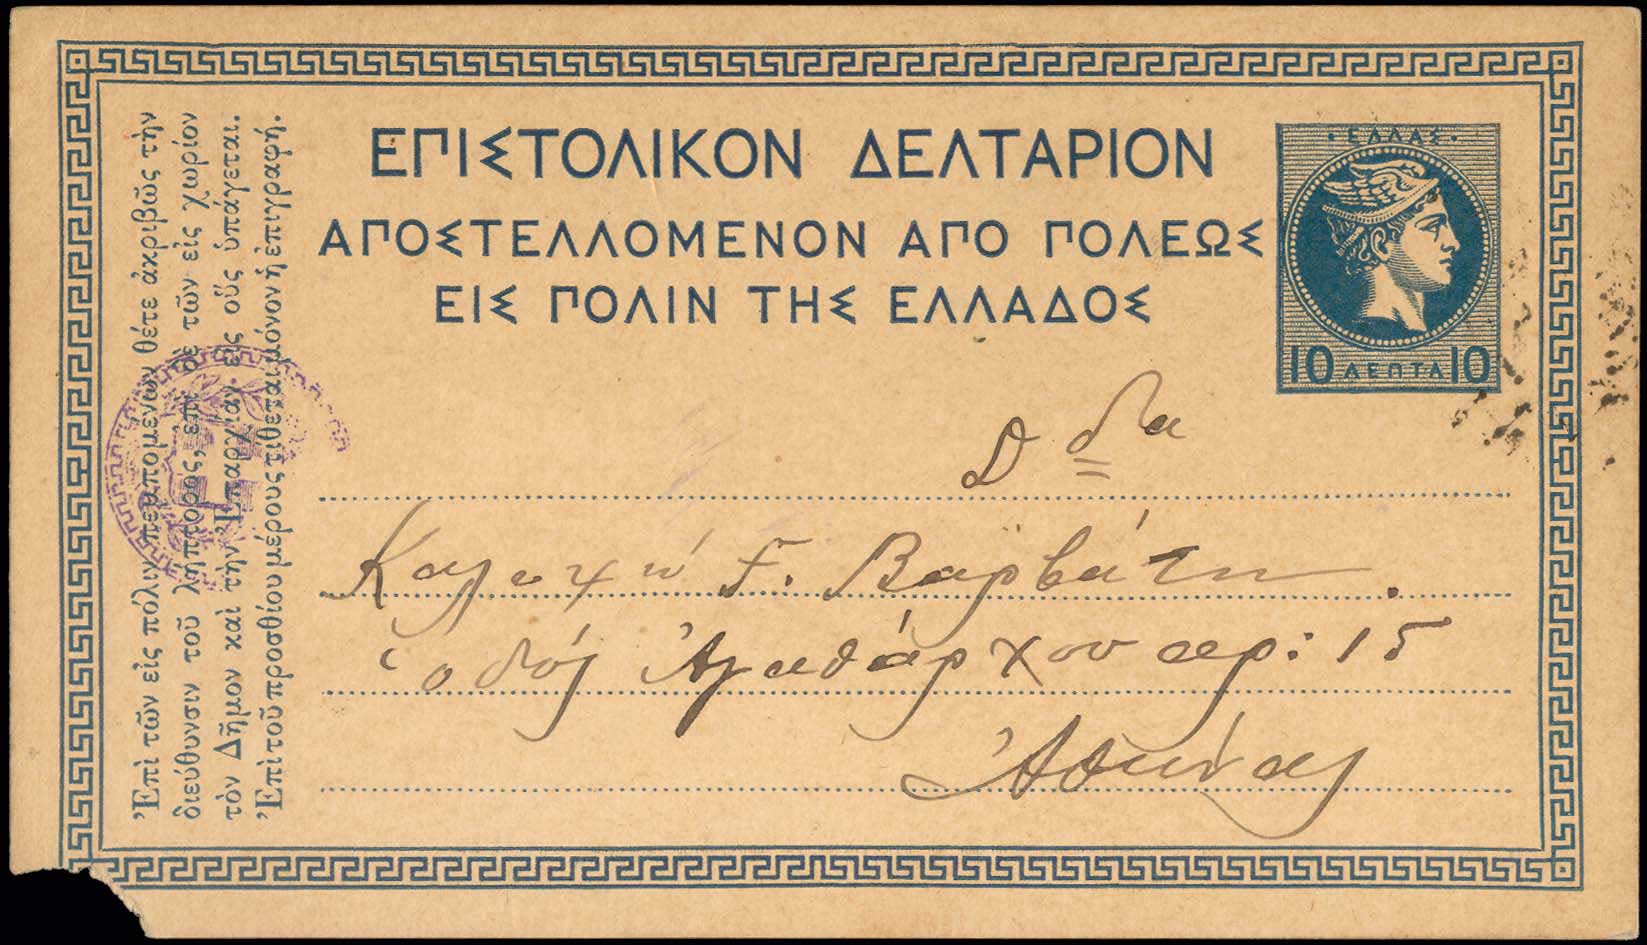 ΕΠΙΣΤΟΛΙΚΟΝ ΔΕΛΤΑΡΙΟΝ
ΑΠΟΣΤΕΛΛΟΜΕΝΟΝ ΑΠΟ ΠΟΛΕΩΣ
ΕΙΣ ΠΟΛΙΝ ΤΗΣ ΕΛΛΑΔΟΣ
·ΕΛΛΑΣ·
10 ΛΕΠΤΑ 10
Ἐπὶ τῶν εἰς πόλιν πεμπομένων θέτε ἀκριβῶς τὴν
διεύθυνσιν τοῦ λήπτορος, ἐπὶ δὲ τῶν εἰς χωρίον
τὸν Δῆμον καὶ τὴν Ἐπαρχίαν εἰς οὓς ὑπάγεται.
Ἐπὶ τοῦ προσθίου μέρους τίθεται μόνον ἡ ἐπιγραφή.
Δδα
Καλυψώ Γ. Βαρβάτη.
ὁδός Ἀγαθάρχου αρ: 15
Ἀθήνας